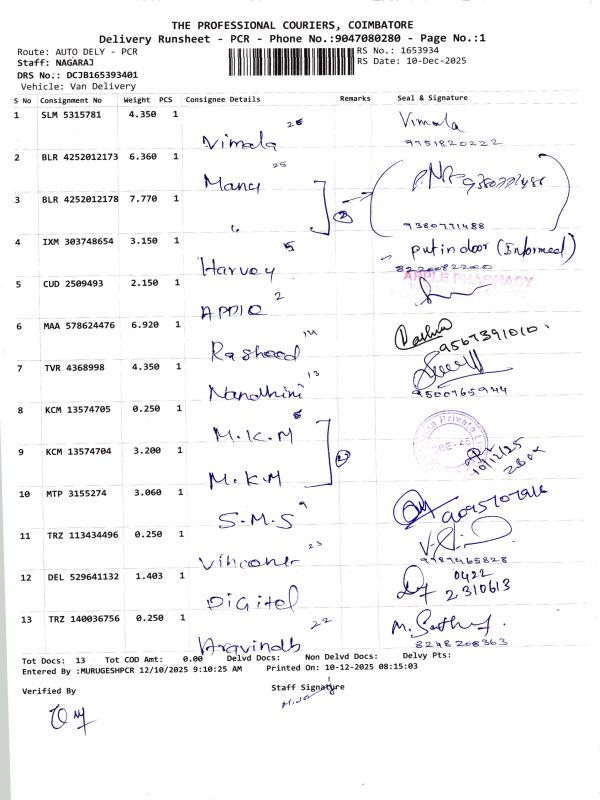 THE PROFESSIONAL COURIERS, COIMBATORE
Delivery Runsheet - PCR - Phone No.:9047080280 - Page No.:1
Route: AUTO DELY - PCR
RS No.: 1653934
Staff: NAGARAJ
RS Date: 10-Dec-2025
DRS No.: DCJB165393401
Vehicle: Van Delivery
S No Consignment No Weight PCS Consignee Details Remarks Seal & Signature
1 SLM 5315781 4.350 1 Vimala 26 Vimala
9751820222
2 BLR 4252012173 6.360 1 Many 25
3 BLR 4252012178 7.770 1 " 2 9380771488
4 IXM 303748654 3.150 1 Harvey 5 put in door (Informed)
8220082200
5 CUD 2509493 2.150 1 APPlE 2 APPLE PHARMACY
6 MAA 578624476 6.920 1 Rasheed 9567391010
7 TVR 4368998 4.350 1 Nandhini 13
8 KCM 13574705 0.250 1 M.K.M
9 KCM 13574704 3.200 1 M.K.M 2 10/12/25
10 MTP 3155274 3.060 1 S.M.S 9 9095707916
11 TRZ 113434496 0.250 1 23
12 DEL 529641132 1.403 1 DiGitel 0422
2310613
13 TRZ 140036756 0.250 1 Aravindh 22
8248208363
Tot Docs: 13 Tot COD Amt: 0.00 Delvd Docs: Non Delvd Docs: Delvy Pts:
Entered By :MURUGESHPCR 12/10/2025 9:10:25 AM Printed On: 10-12-2025 08:15:03
Verified By
Staff Signature